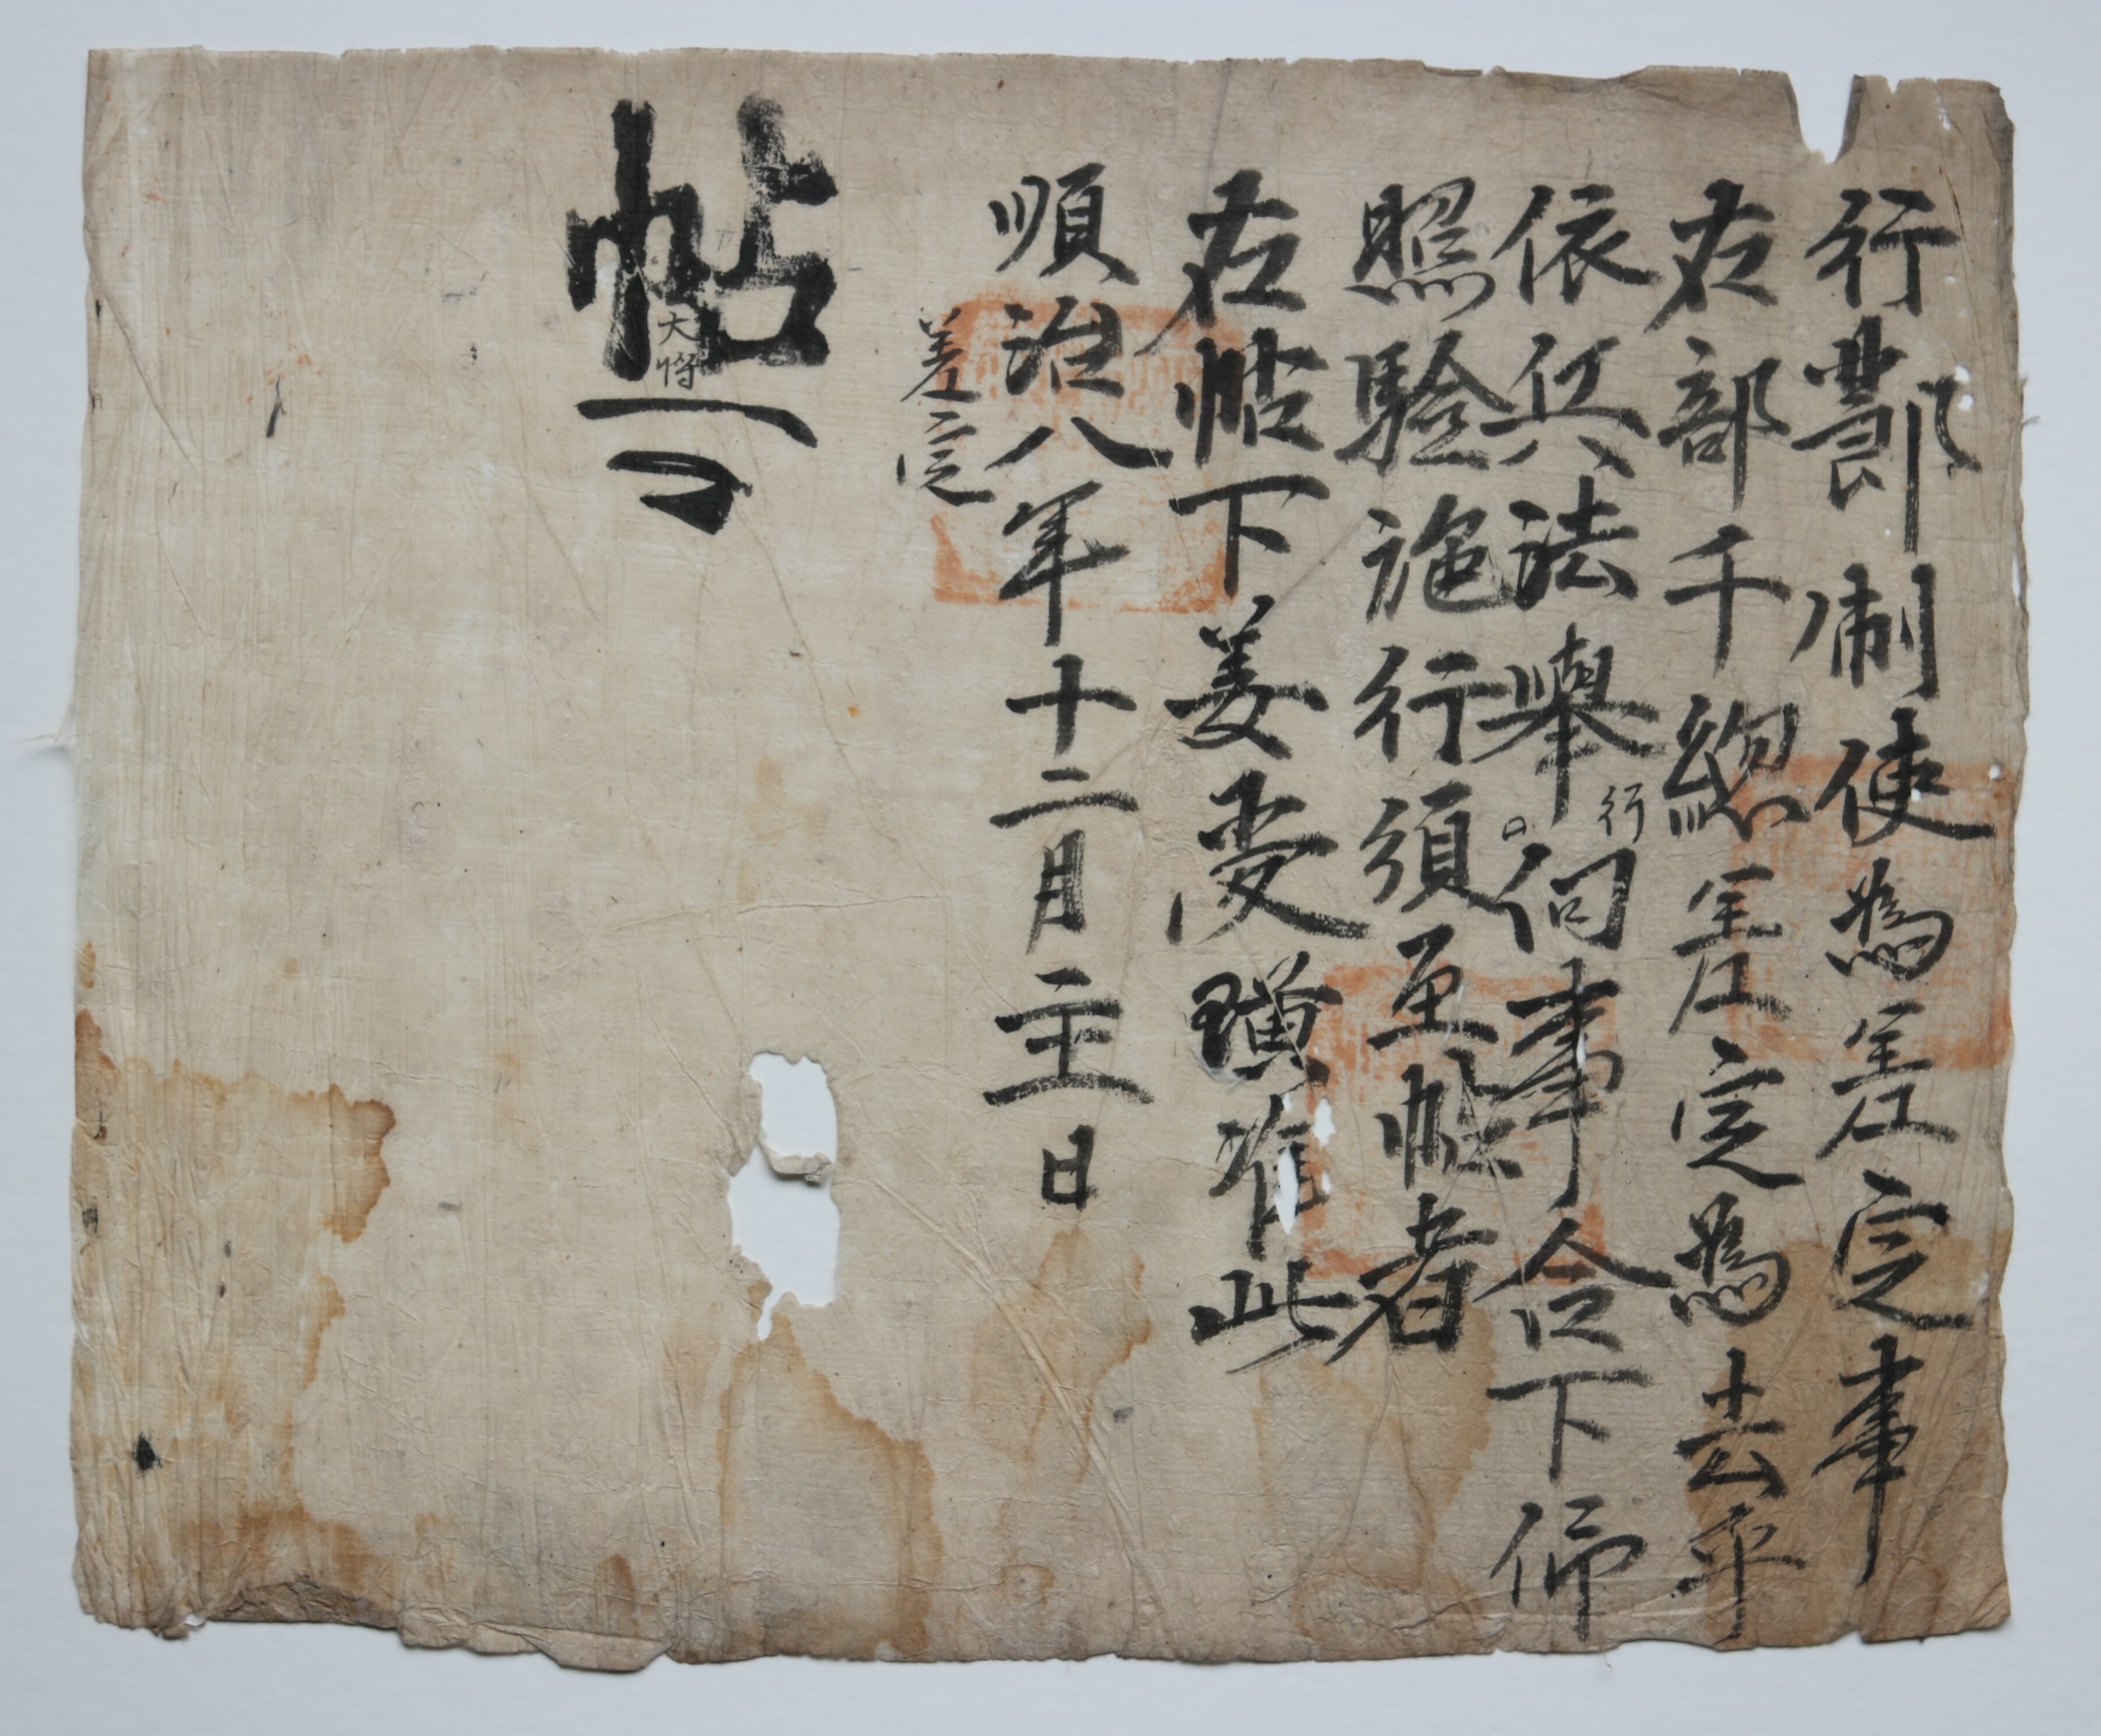 行節制使爲差定事
右部千緫差定爲去乎
依兵法擧行向事合下仰
照驗施行須至帖者
右帖下姜 璜准此
順治八年十二月二十一日
差定
帖
大將